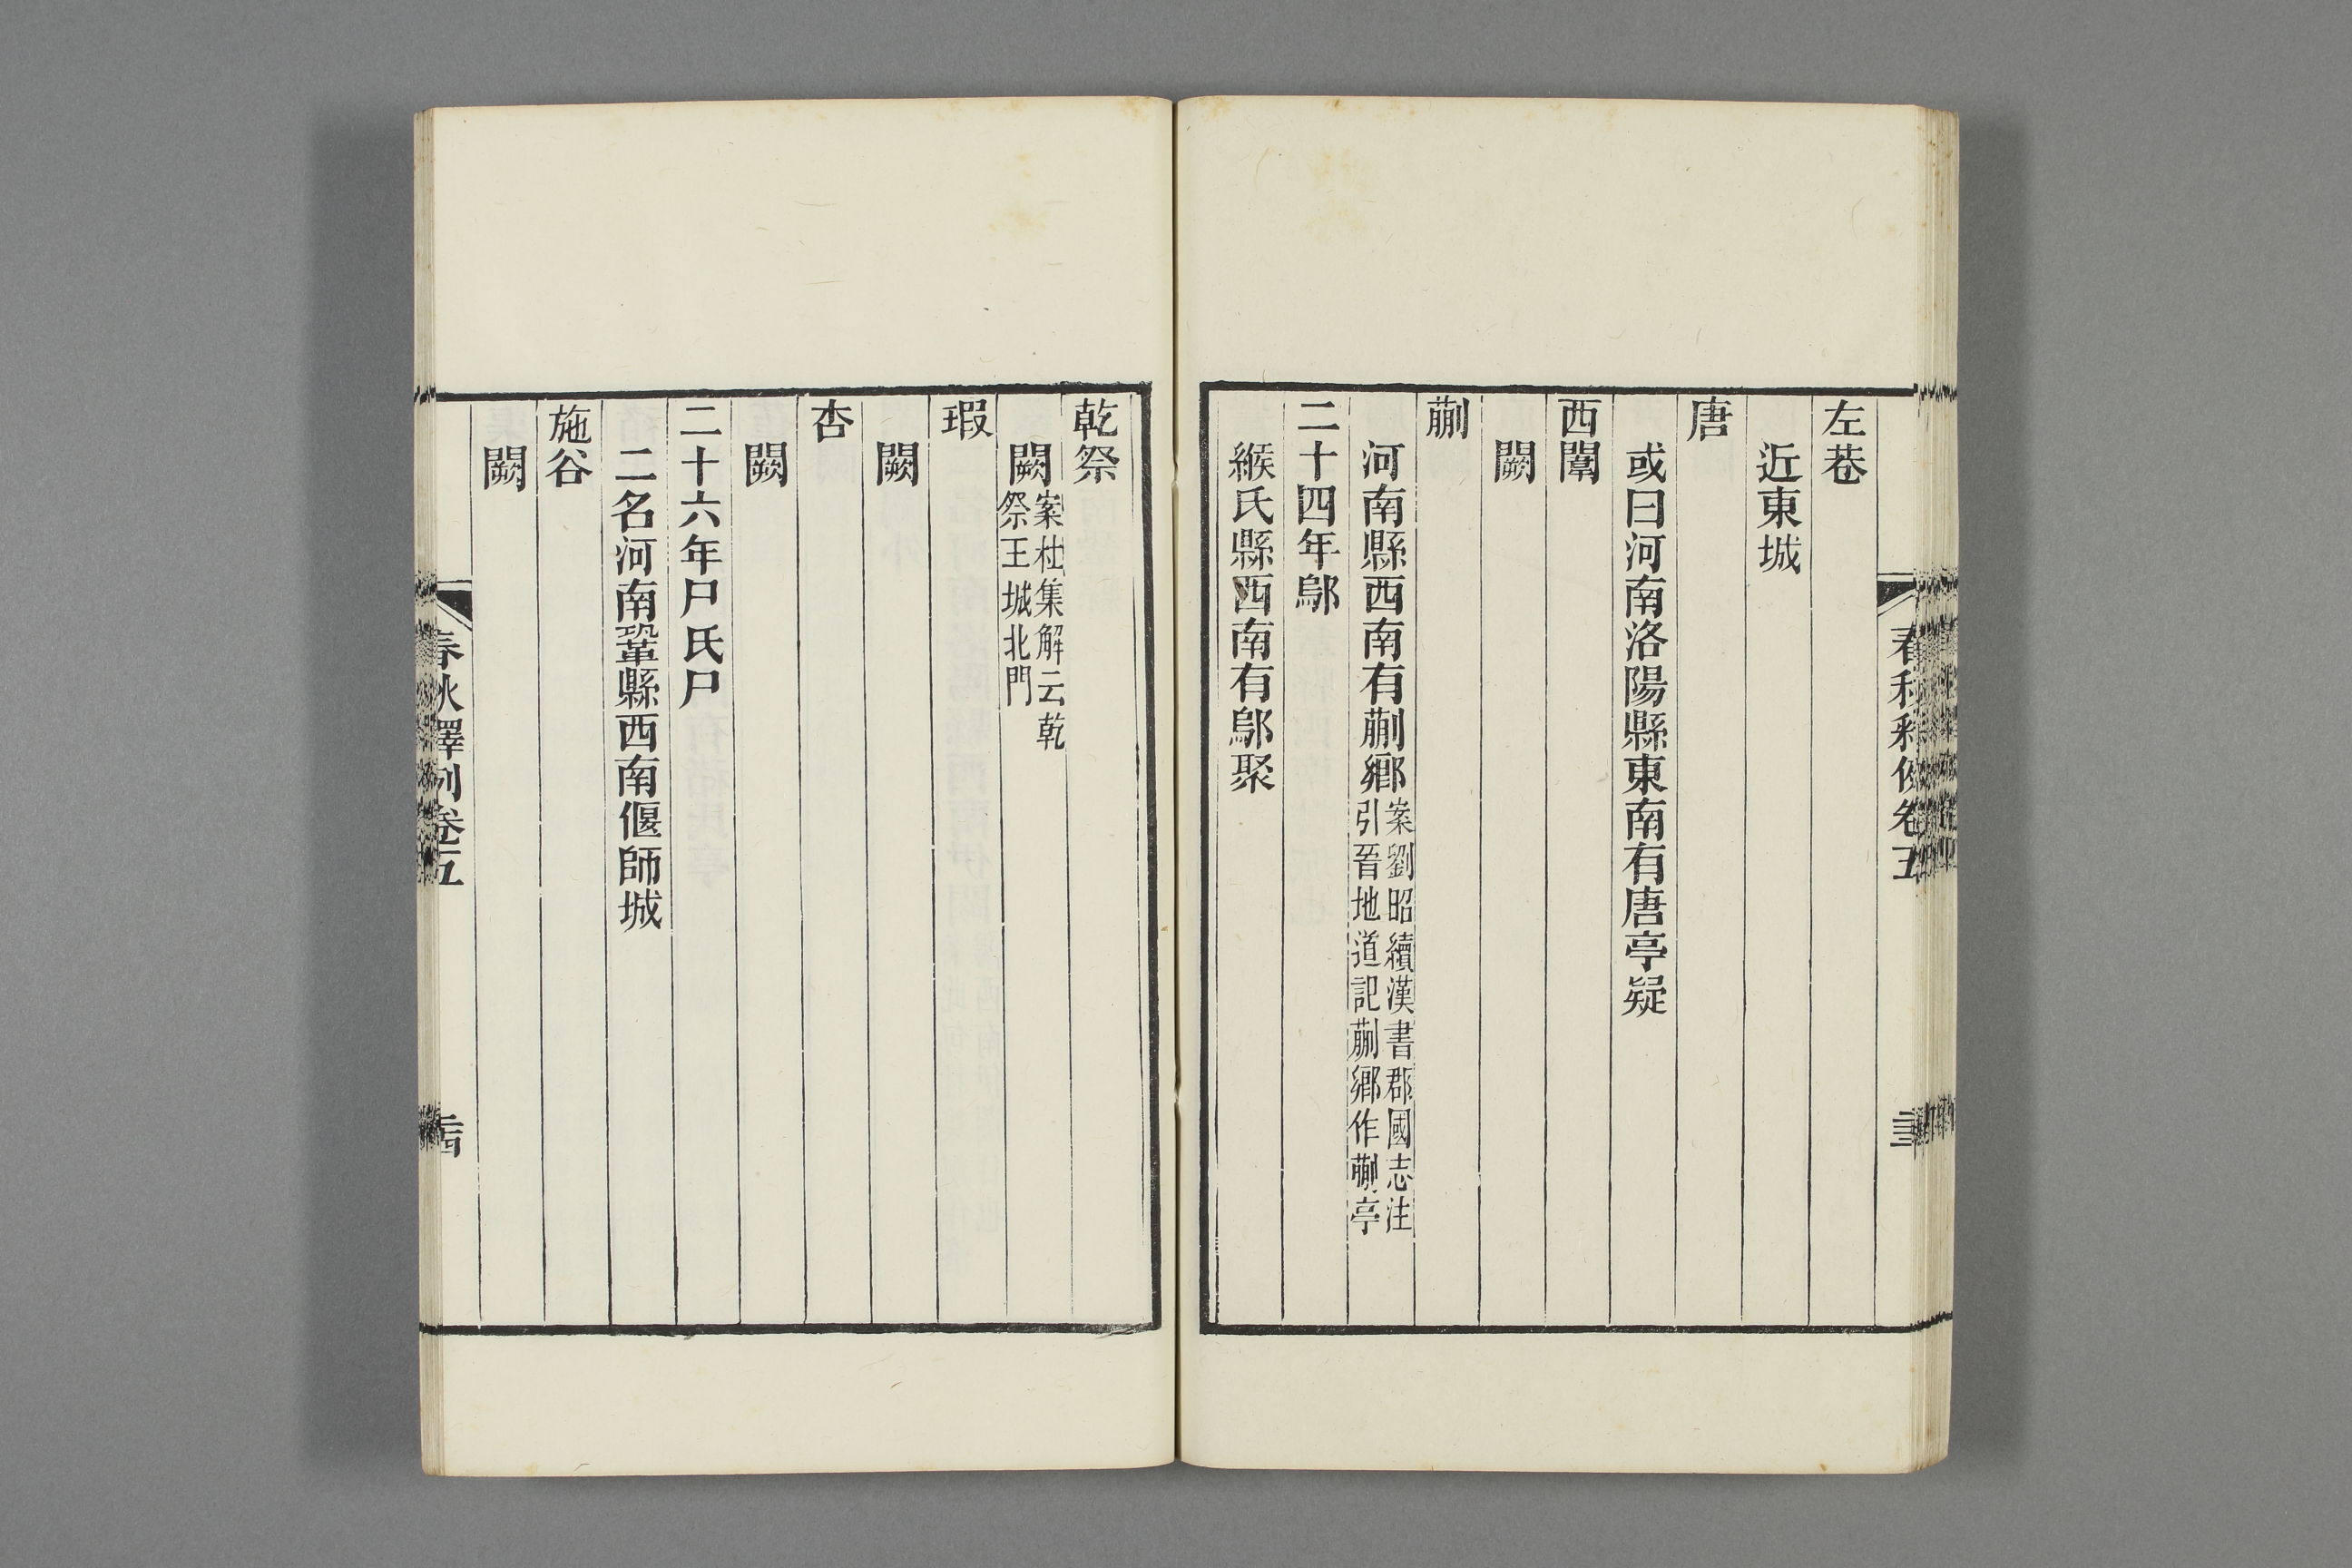 左巷
近東城
唐
或曰河南洛陽縣東南有唐亭疑
西闈
闕
蒯
河南縣西南有蒯鄉案劉昭續漢書郡國志注
引晉地道記蒯鄉作蒯亭
二十四年鄔
緱氏縣西南有鄔聚
乾祭
闕案杜集解云乾
祭王城北門
瑕
闕
杏
闕
二十六年尸氏尸
二名河南鞏縣西南偃師城
施谷
闕
春秋釋例卷五